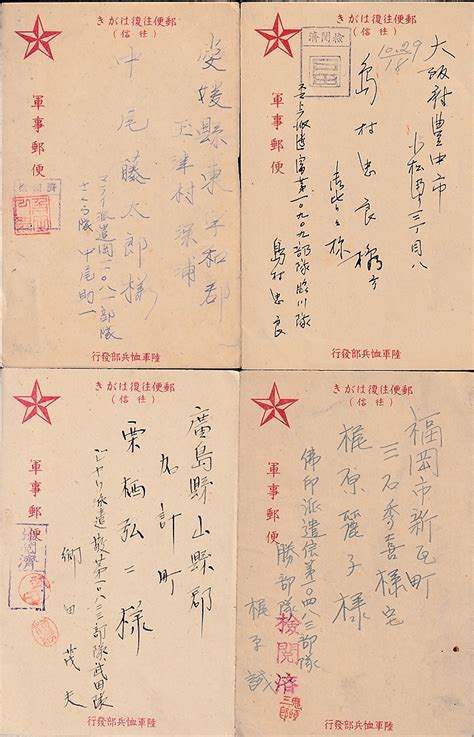 郵便往復はがき
（往信）
軍事郵便
愛媛縣東宇和郡
玉津村深浦
中尾藤太郎様
マライ派遣岡一〇八一部隊
中尾助一
陸軍恤兵部發行
郵便往復はがき
（往信）
軍事郵便
檢閲濟
大阪府豊中市
十三丁目八
島村忠良様方
派遣富第一〇九〇九部隊
島村忠良
陸軍恤兵部發行
郵便往復はがき
（往信）
軍事郵便
廣島縣山縣郡
加計町
栗栖弘二様
派遣
部隊武田隊
郷田茂夫
陸軍恤兵部發行
郵便往復はがき
（往信）
軍事郵便
福岡市新瓦町
三石秀喜様宅
梶原麗子様
佛印派遣信第一〇四八三部隊
勝部隊
檢閲済
陸軍恤兵部發行